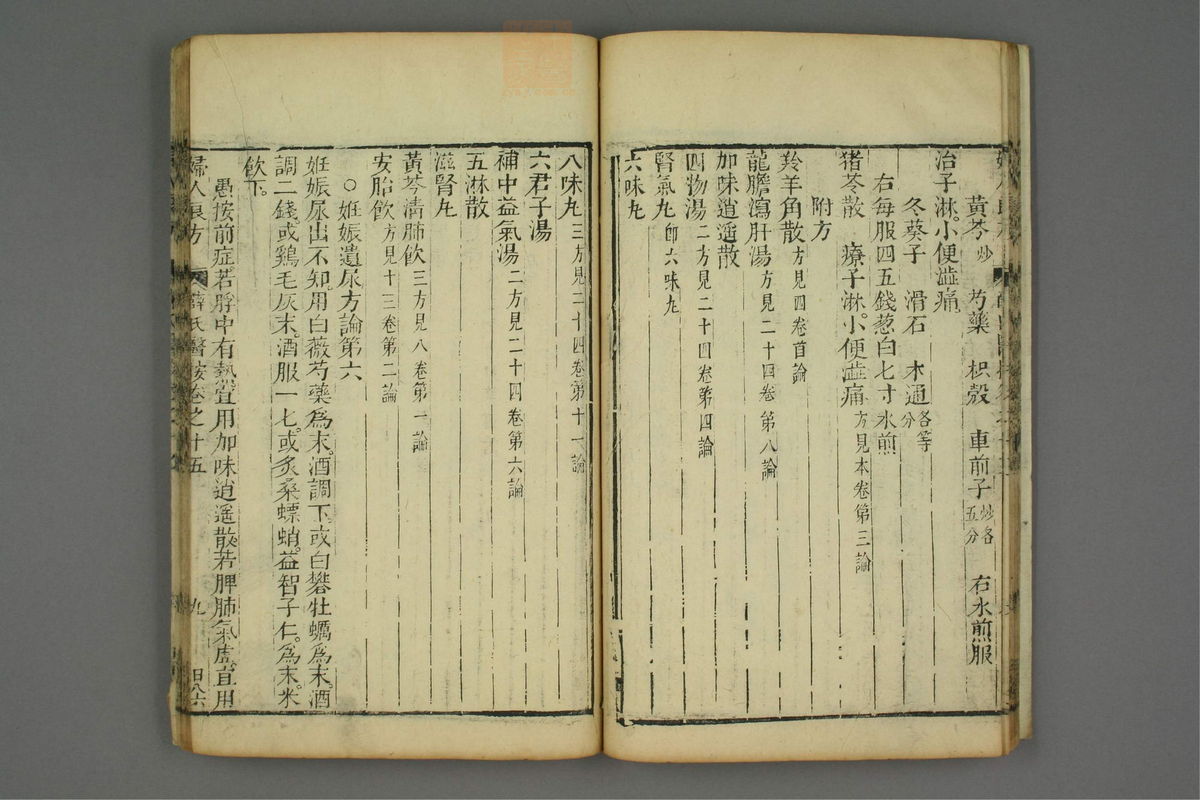 黃芩炒 芍藥 枳殼 車前子炒各五分 右水煎服
治子淋。小便澁痛。
冬葵子 滑石 木通各等分
右每服四五錢葱白七寸水煎
附方
猪苓散 療子淋。小便澁痛方見本卷第三論
羚羊角散方見四卷首論
龍膽瀉肝湯方見二十四卷第八論
加味逍遥散
四物湯二方見二十四卷第四論
腎氣丸即六味丸
六味丸
八味丸三方見二十四卷第十一論
六君子湯
補中益氣湯二方見二十四卷第六論
五淋散
滋腎丸
黃芩清肺飲三方見八卷第一論
安胎飲方見十三卷第二論
○姙娠遺尿方論第六
姙娠尿出不知。用白薇芍藥爲末。酒調下或白礬牡蠣爲末。酒
調二錢或鷄毛灰末。酒服一七。或炙桑螵蛸。益智子仁。爲末。米
飲下。
愚按前症若脬中有熱。宜用加味逍遥散若脾肺氣虛宜用
婦人良方 薛氏醫按卷之十五 九